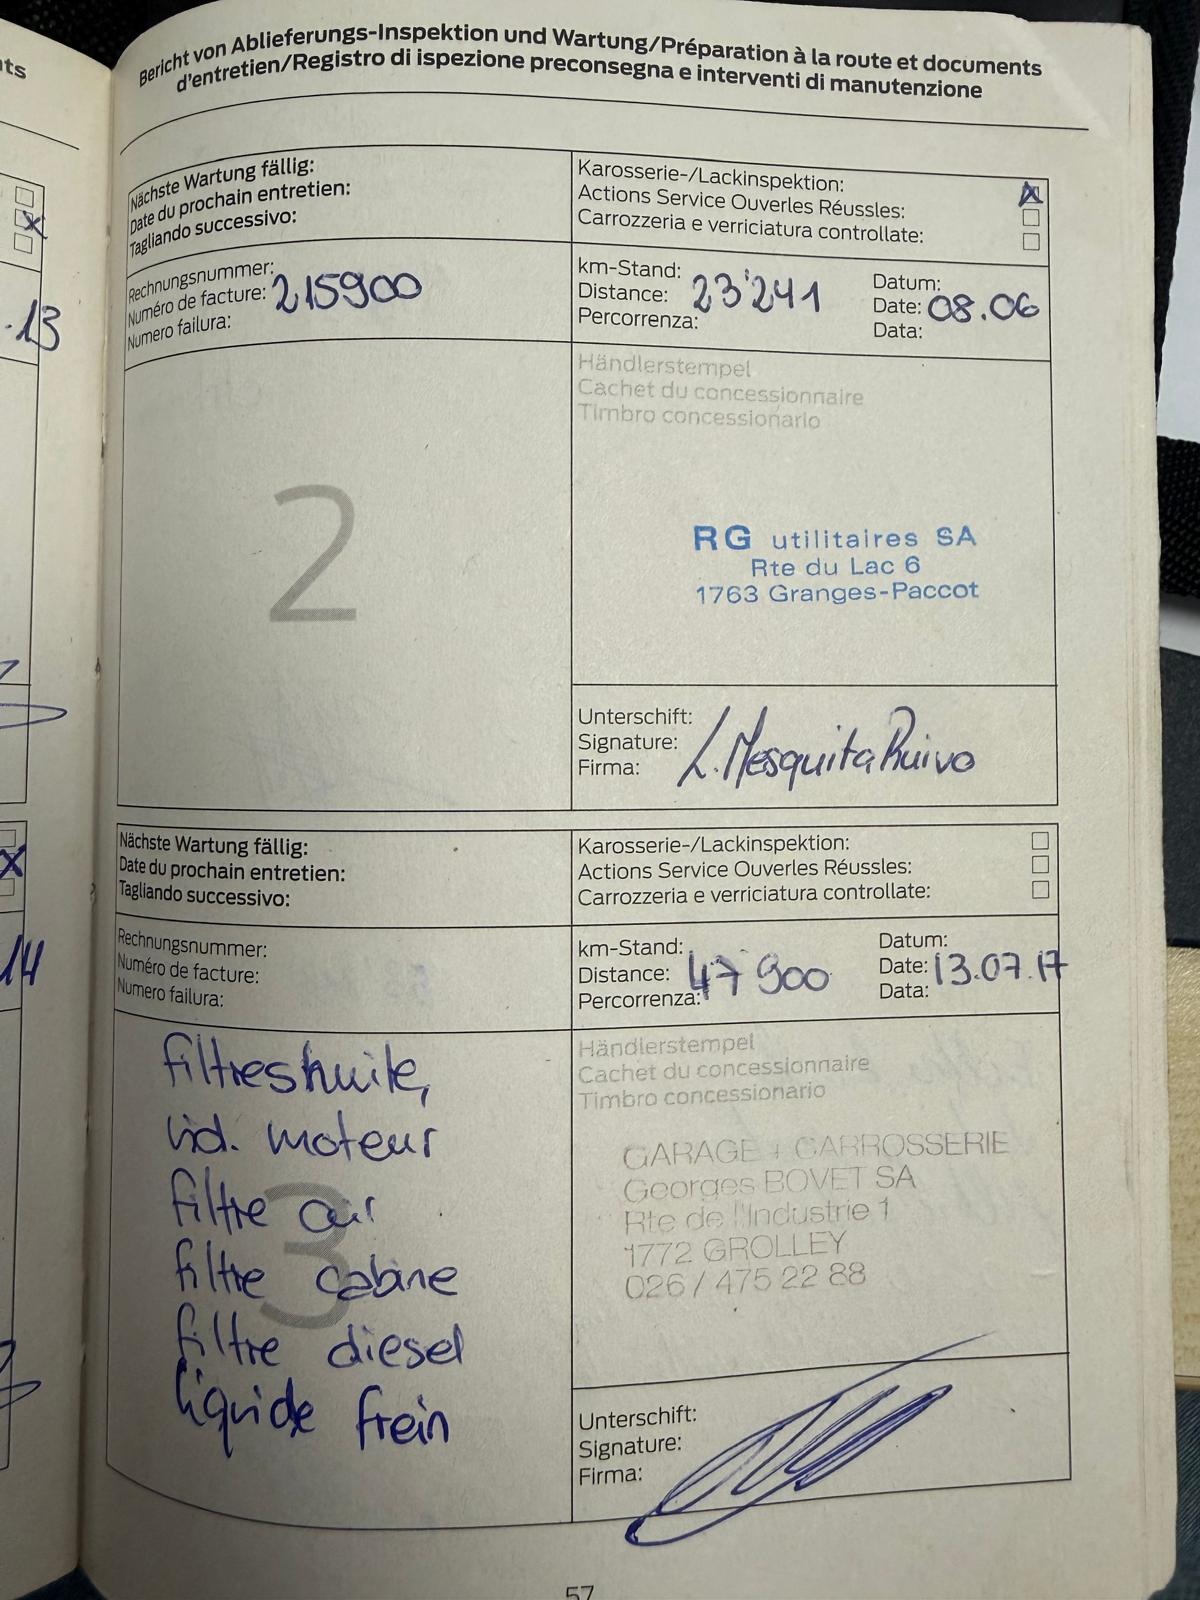 nts
.13
14
Bericht von Ablieferungs-Inspektion und Wartung/Préparation à la route et documents
d'entretien/Registro di ispezione preconsegna e interventi di manutenzione
Nächste Wartung fällig:
Date du prochain entretien:
Tagliando successivo:
Karosserie-/Lackinspektion:
Actions Service Ouverles Réussles:
Carrozzeria e verriciatura controllate:
Rechnungsnummer:
Numéro de facture: 215900
Numero failura:
km-Stand:
Distance: 23'241
Percorrenza:
Datum:
Date: 08.06
Data:
2
Händlerstempel
Cachet du concessionnaire
Timbro concessionario
RG utilitaires SA
Rte du Lac 6
1763 Granges-Paccot
Unterschift:
Signature: L. Mesquita Ruivo
Firma:
Nächste Wartung fällig:
Date du prochain entretien:
Tagliando successivo:
Karosserie-/Lackinspektion:
Actions Service Ouverles Réussles:
Carrozzeria e verriciatura controllate:
Rechnungsnummer:
Numéro de facture:
Numero failura:
km-Stand:
Distance: 47 900
Percorrenza:
Datum:
Date: 13.07.17
Data:
3
filtreshuile,
vid. moteur
filtre air
filtre cabine
filtre diesel
liquide frein
Händlerstempel
Cachet du concessionnaire
Timbro concessionario
GARAGE + CARROSSERIE
Georges BOVET SA
Rte de l'Industrie 1
1772 GROLLEY
026 / 475 22 88
Unterschift:
Signature:
Firma:
57